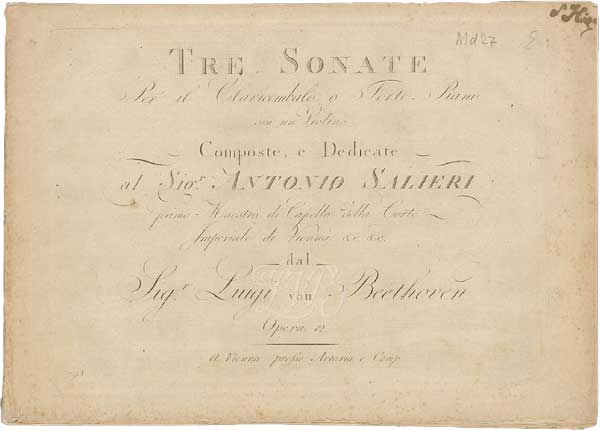 Md 27
TRE SONATE
Per il Clavicembalo o Forte-Piano
con un Violino
Composte, e Dedicate
al Sigr. ANTONIO SALIERI
primo Maestro di Capella della Corte
Imperiale di Vienna &c. &c.
dal
Sigr. Luigi van Beethoven
Opera 12
A Vienna presso Artaria e Comp.